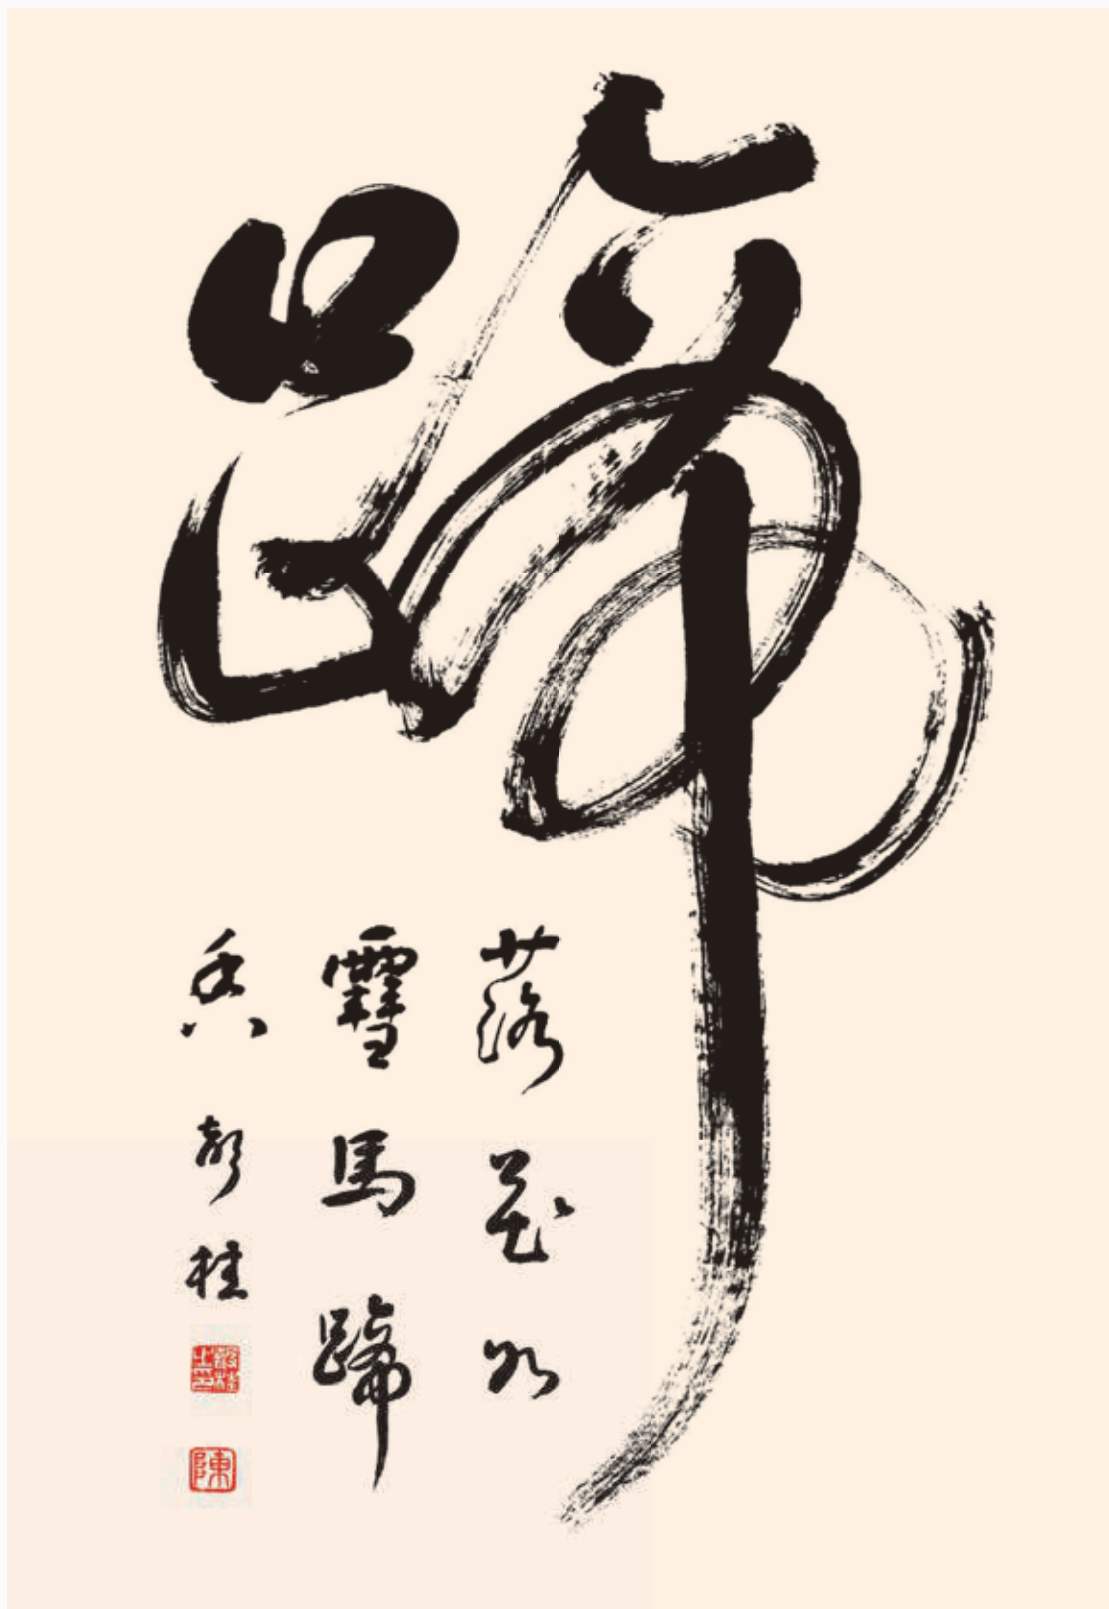 蹄
落花如
雪馬蹄
香 桂
陳